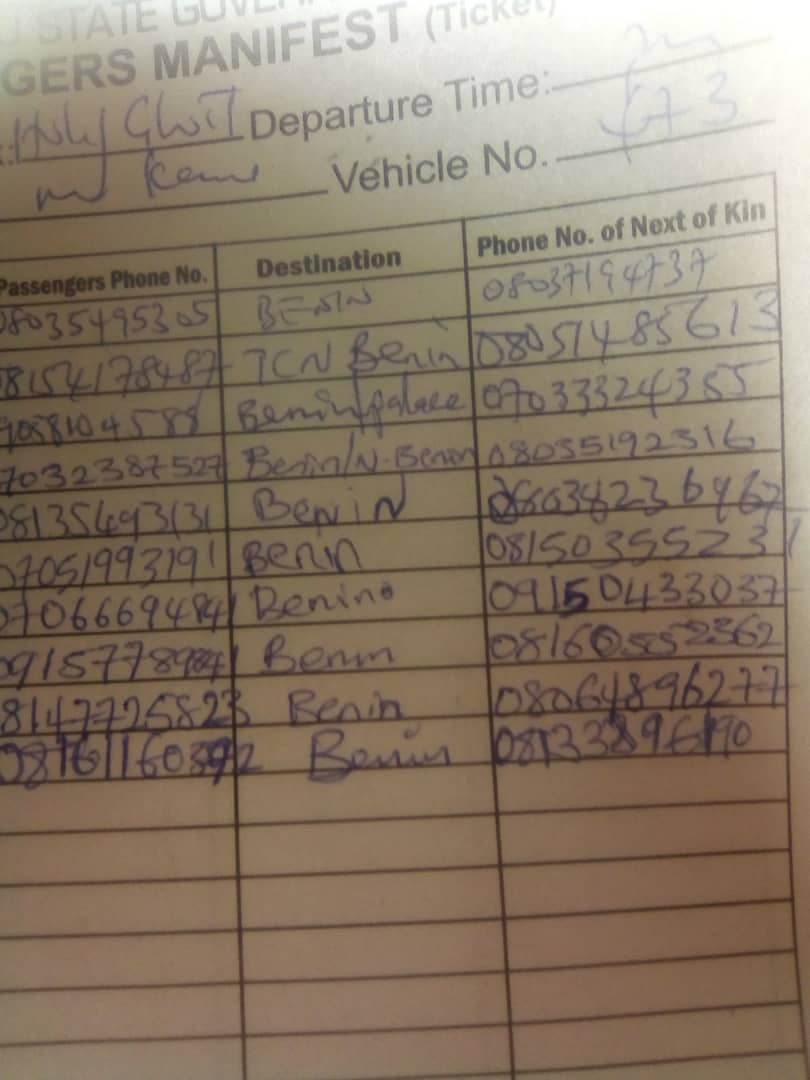 STATE GOVER
GERS MANIFEST (Ticket)
Holy Ghost Departure Time:
Vehicle No. 73
Passengers Phone No. Destination Phone No. of Next of Kin
08035495305 BENIN 08037194737
08154178487 TCN Benin 08051485613
9058104588 Benin/palace 07033324355
7032387527 Benin/N-Benin 08035192316
08135693131 BENIN
07051993191 Benin 08150355523
Benin 09150433037
Benin 08160552362
8147725823 Benin 08064896277
Benin